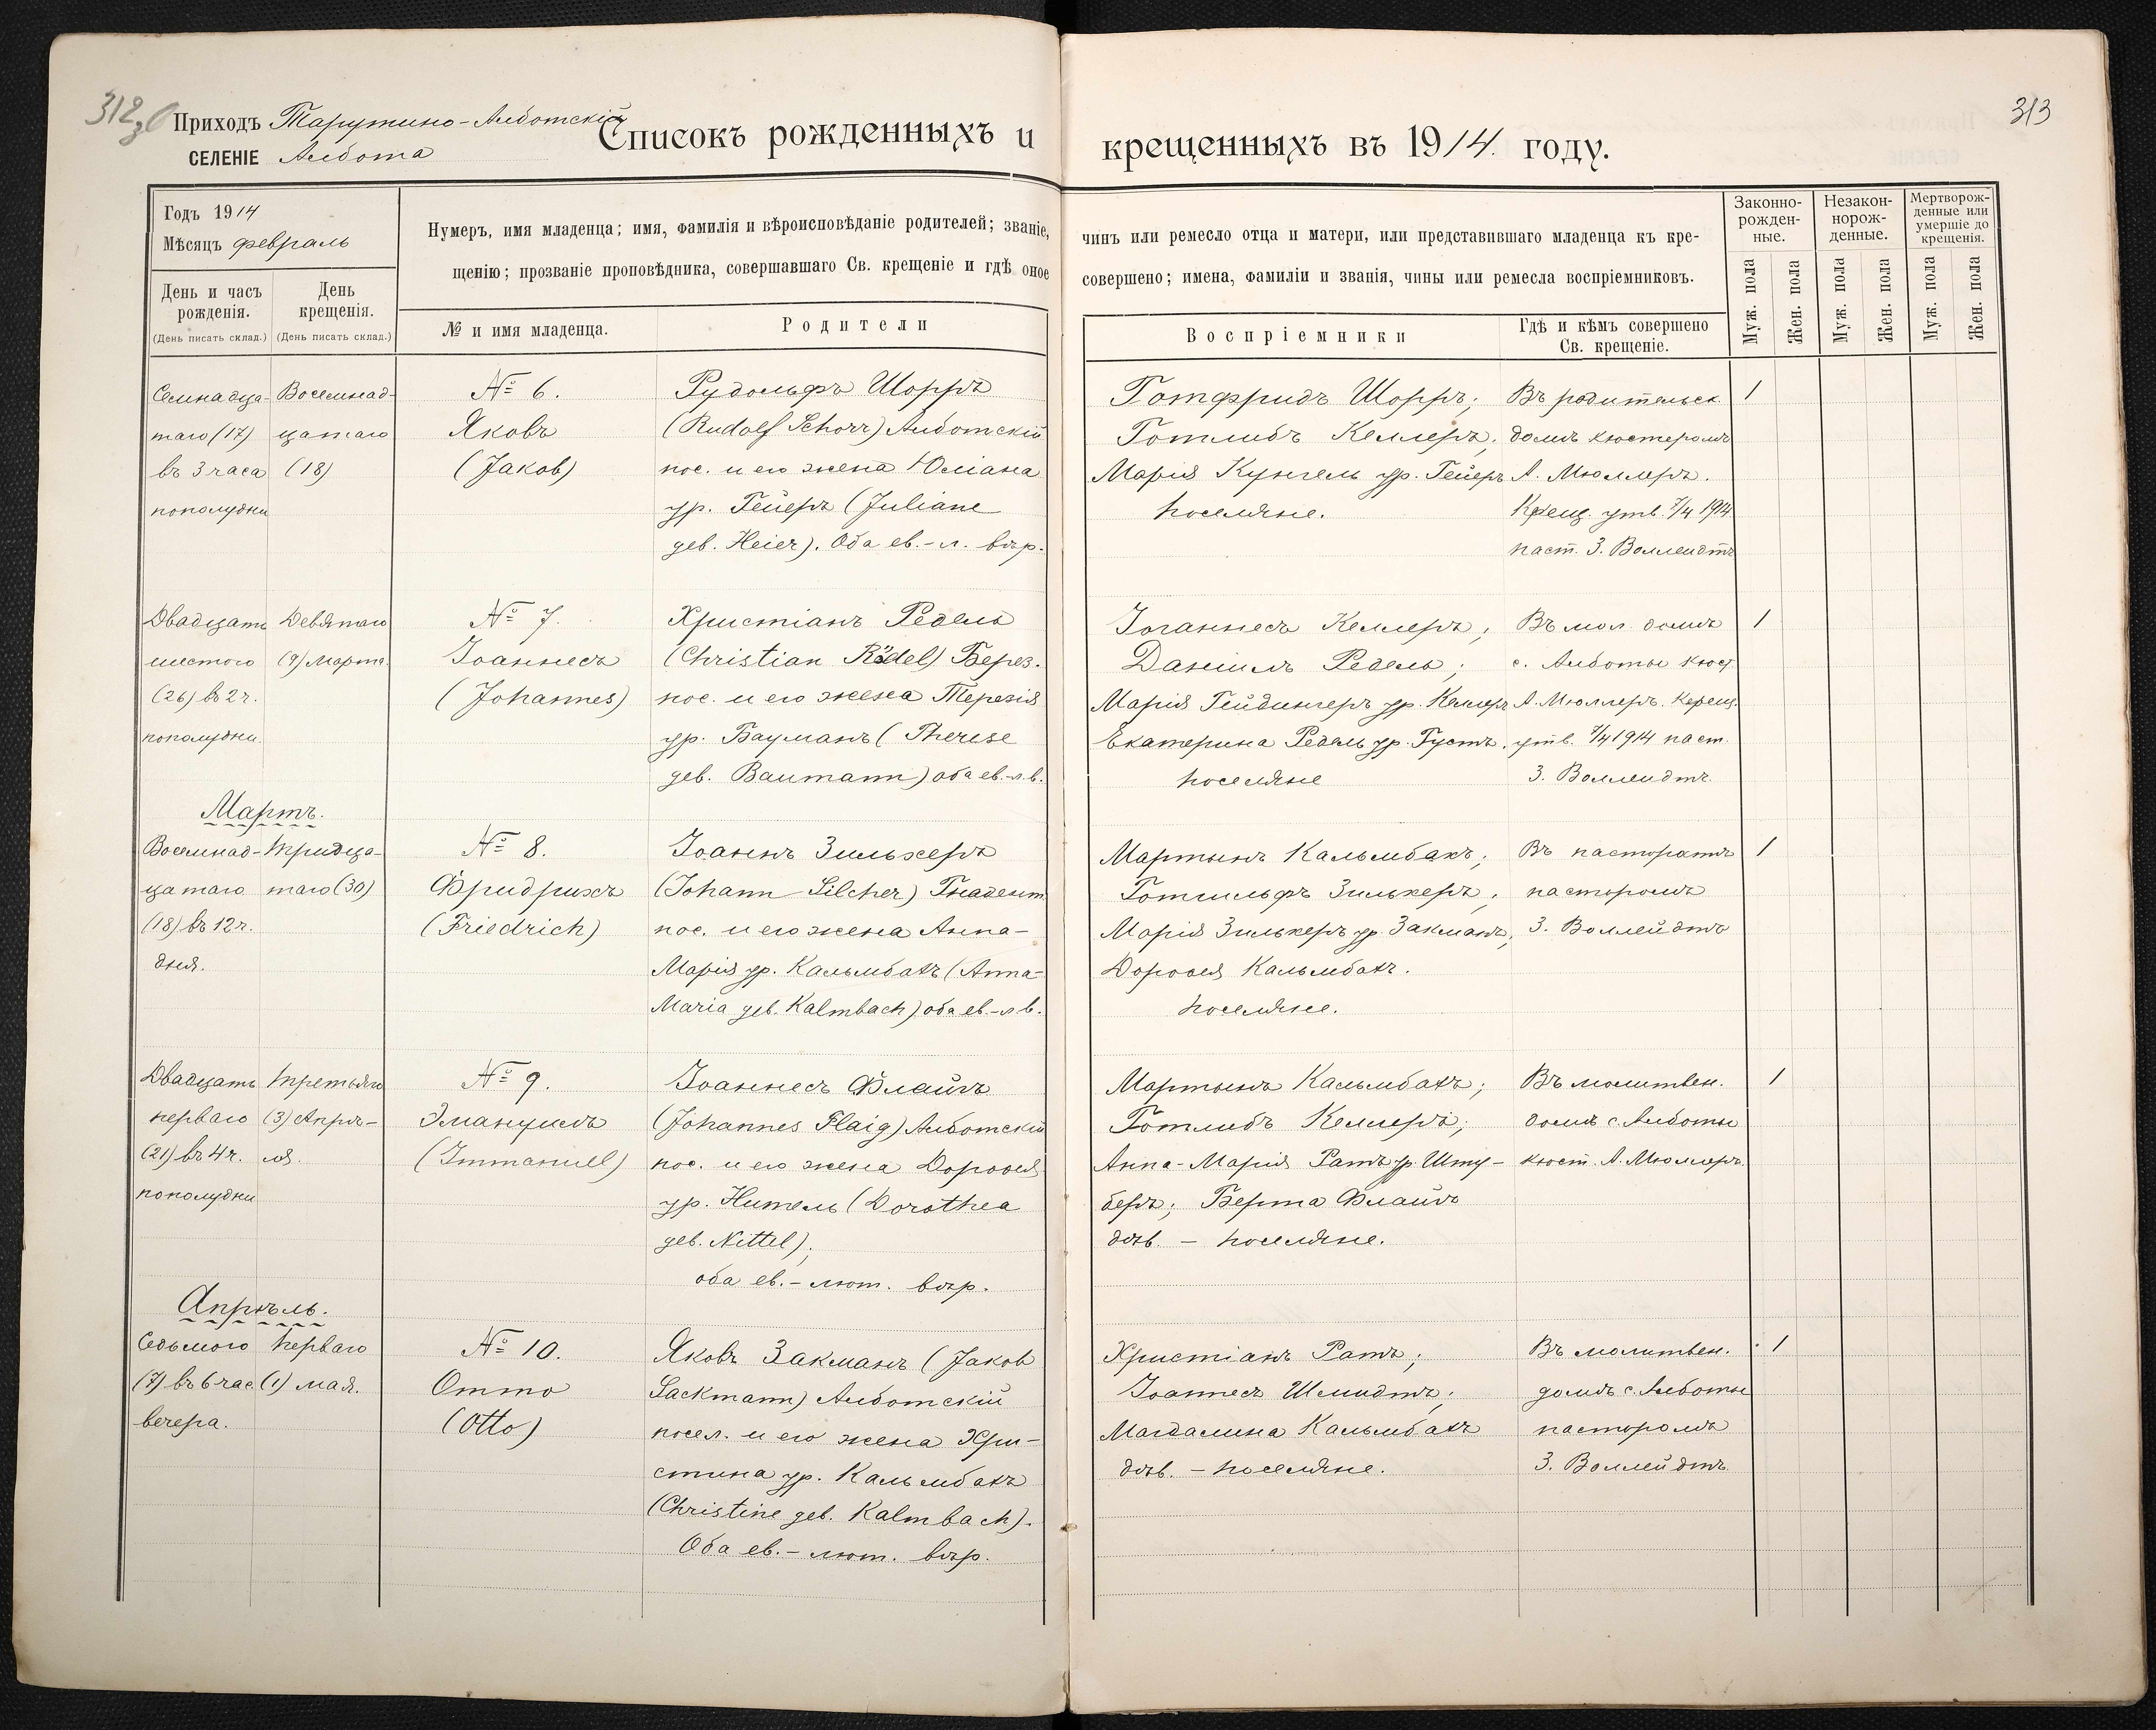 312
313
Приходъ Тарутино-Альботскій
СЕЛЕНІЕ Альбота
Списокъ рожденныхъ и крещенныхъ въ 1914. году.
Годъ 1914
Мѣсяцъ февраль
День и часъ рожденія.
(День писать склад.)
День крещенія.
(День писать склад.)
Нумеръ, имя младенца; имя, фамилія и вѣроисповѣданіе родителей; званіе,
щенію; прозваніе проповѣдника, совершавшаго Св. крещеніе и гдѣ оное
№ и имя младенца.
Родители
чинъ или ремесло отца и матери, или представившаго младенца къ кре-
совершено; имена, фамиліи и званія, чины или ремесла воспріемниковъ.
Воспріемники
Гдѣ и кѣмъ совершено
Св. крещеніе.
Законно-
рожден-
ные.
Незакон-
норож-
денные.
Мертворож-
денные или
умершіе до
крещенія.
Муж. пола
Жен. пола
Муж. пола
Жен. пола
Муж. пола
Жен. пола
Семнадца-
таго (17)
въ 3 часа
пополудни
Восемнад-
цатаго
(18)
№ 6.
Яковъ
(Jakob)
Рудольфъ Шорръ
(Rudolf Schorr) Альботскій
пос. и его жена Юліана
ур. Гейеръ (Juliane
geb. Heier). Оба ев.-л. вѣр.
Готфридъ Шорръ;
Готлибъ Келлеръ;
Марія Кунгель ур. Гейеръ
поселяне.
Въ родительск.
домѣ кюстеромъ
А. Мюллеръ.
Крещ. утв. 7/4 1914
паст. З. Воллейдтъ
1
Двадцать
шестого
(26) въ 2 ч.
пополудни.
Девятаго
(9) Марта.
№ 7.
Іоаннесъ
(Johannes)
Христіанъ Редель
(Christian Rädel) Берез.
пос. и его жена Терезія
ур. Бауманъ (Therese
geb. Baumann) оба ев.-л.в.
Іоганнесъ Келлеръ;
Даніилъ Редель;
Марія Гейдингеръ ур. Келлеръ
Екатерина Редель ур. Густъ.
поселяне
Въ мол. домѣ
с. Альботы кюст.
А. Мюллеръ. Крещ.
утв. 7/4 1914 паст.
З. Воллейдтъ
1
Мартъ.
Восемнад-
цатаго
(18) въ 12 ч.
дня.
Тридца-
таго (30)
№ 8.
Фридрихъ
(Friedrich)
Іоаннъ Зильхеръ
(Johann Silcher) Гнадент.
пос. и его жена Анна-
Марія ур. Кальмбахъ (Anna-
Maria geb. Kalmbach) оба ев.-л в.
Мартынъ Кальмбахъ;
Готгильфъ Зилькеръ;
Марія Зилькеръ ур. Закманъ;
Доровея Кальмбахъ.
поселяне.
Въ пасторатѣ
пасторомъ
З. Воллейдтъ
1
Двадцать
перваго
(21) въ 4 ч.
пополудни
Третьяго
(3) Апрѣ-
ля.
№ 9.
Эмануилъ
(Immanuel)
Іоаннесъ Флайгъ
(Johannes Flaig) Альботскій
пос. и его жена Доровея
ур. Нитель (Dorothea
geb. Nittel);
оба ев.-лют. вѣр.
Мартынъ Кальмбахъ;
Готлибъ Келлеръ;
Анна-Марія Ратъ ур. Шту-
беръ; Берта Флайгъ
дѣв. - поселяне.
Въ молитвен.
домѣ с. Альботы
кюст. А. Мюллеръ.
1
Апрѣль.
Седьмого
(7) въ 6 час.
вечера.
Перваго
(1) мая.
№ 10.
Отто
(Otto)
Яковъ Закманъ (Jakob
Sackmann) Альботскій
посел. и его жена Хри-
стина ур. Кальмбахъ
(Christine geb. Kalmbach).
Оба ев.-лют. вѣр.
Христіанъ Ратъ;
Іоаннесъ Шмидтъ;
Магдалина Кальмбахъ
дѣв. - поселяне.
Въ молитвен.
домѣ с. Альботы
пасторомъ
З. Воллейдтъ.
1